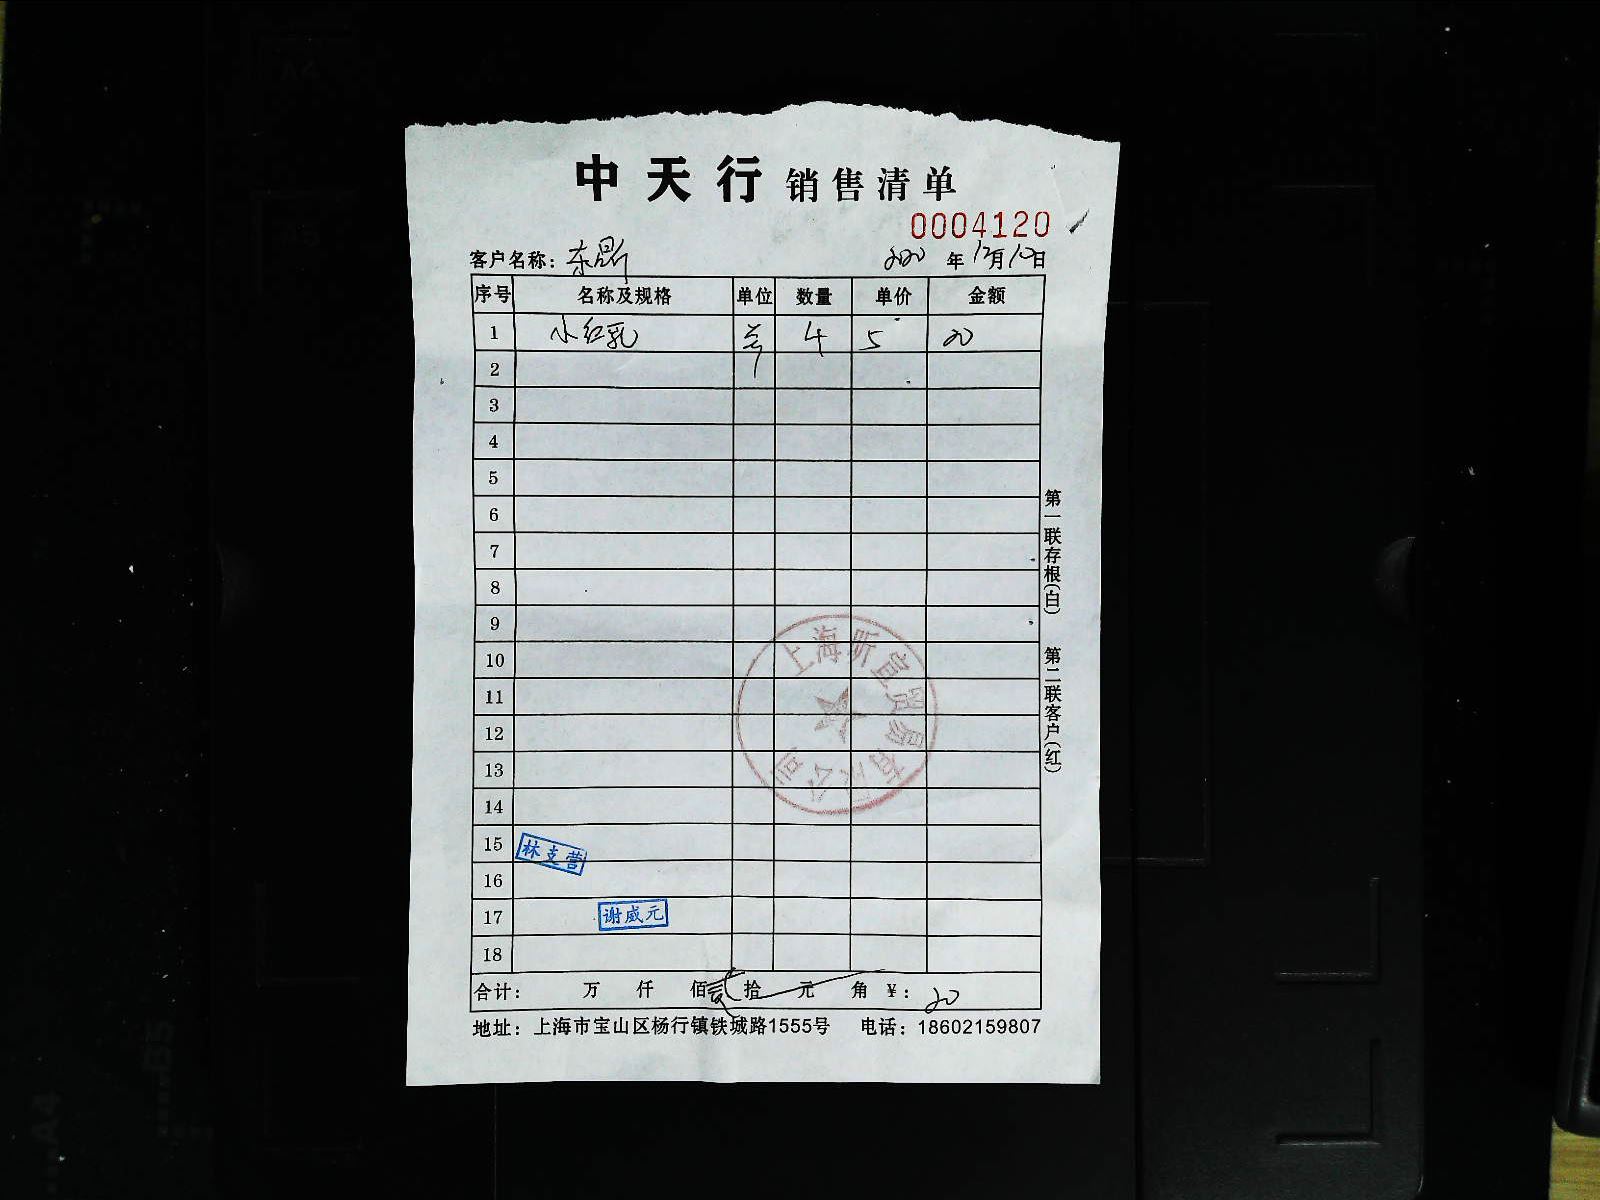 中天行 销售清单
0004120
客户名称：东昂 2020年12月10日
序号 名称及规格 单位 数量 单价 金额
1 小红乳 4 5 20
2
3
4
5
6
7
8
9
10
11
12
13
14
15 林支营
16
17 谢威元
18
合计： 万 仟 佰 贰拾 元 角 ¥：20
地址：上海市宝山区杨行镇铁城路1555号 电话：18602159807
第一联存根(白) 第二联客户(红)
上海昕宜贸易有限公司
A4
B5